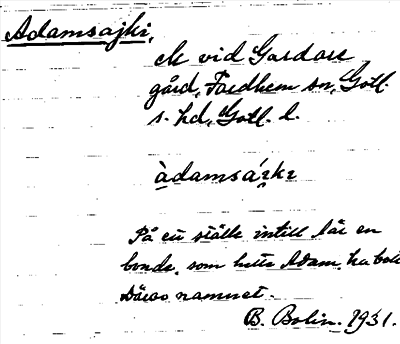 Adamsajki,
vid Gardare
gård, Fardhem sn, Gotl.
s. hd, Gotl. l.
àdamsáıkı
På ett ställe intill lär en
bonde, som hette Adam, ha bott
Därav namnet.
B. Bolin. 1931.